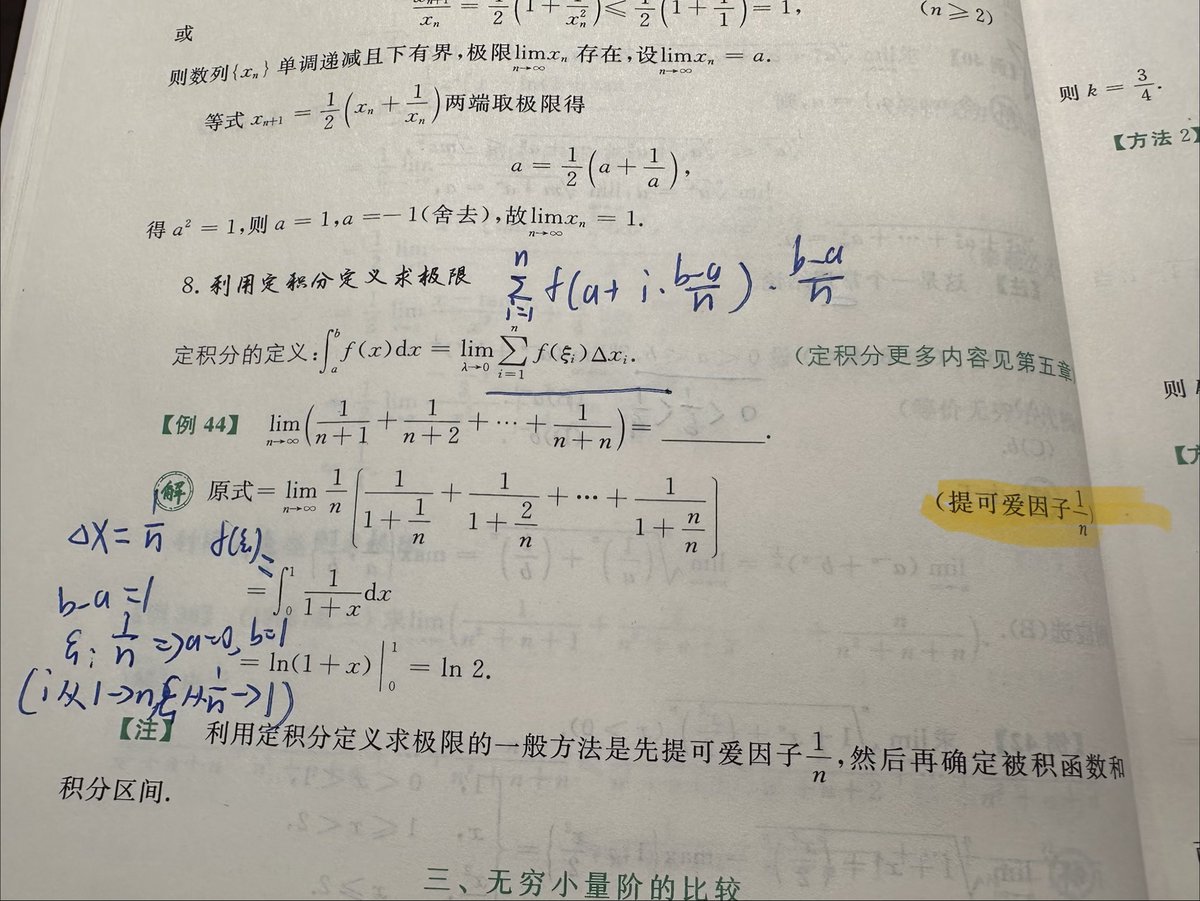 x_{n+1}/x_n = 1/2(1 + 1/x_n²) ≤ 1/2(1 + 1/1) = 1, (n ≥ 2)
或
则数列{x_n}单调递减且下有界,极限lim_{n→∞} x_n 存在,设lim_{n→∞} x_n = a.
等式 x_{n+1} = 1/2(x_n + 1/x_n)两端取极限得
a = 1/2(a + 1/a),
得 a² = 1,则 a = 1,a = −1(舍去),故lim_{n→∞} x_n = 1.
8. 利用定积分定义求极限
∑_{i=1}^{n} f(a + i · (b-a)/n) · (b-a)/n
定积分的定义:∫_a^b f(x)dx = lim_{λ→0} ∑_{i=1}^{n} f(ξ_i)Δx_i. (定积分更多内容见第五章
【例 44】 lim_{n→∞}(1/(n+1) + 1/(n+2) + ⋯ + 1/(n+n)) = ________.
解 原式 = lim_{n→∞} 1/n [1/(1+1/n) + 1/(1+2/n) + ⋯ + 1/(1+n/n)] (提可爱因子 1/n)
ΔX = 1/n f(ξ_i)
= ∫_0^1 1/(1+x) dx
b-a=1
ξ_i: 1/n ⇒ a=0, b=1
= ln(1+x)|_0^1 = ln 2.
(i从1→n,ξ从1/n→1)
【注】 利用定积分定义求极限的一般方法是先提可爱因子 1/n,然后再确定被积函数和
积分区间.
三、无穷小量阶的比较
则 k = 3/4.
【方法 2】
则
【方